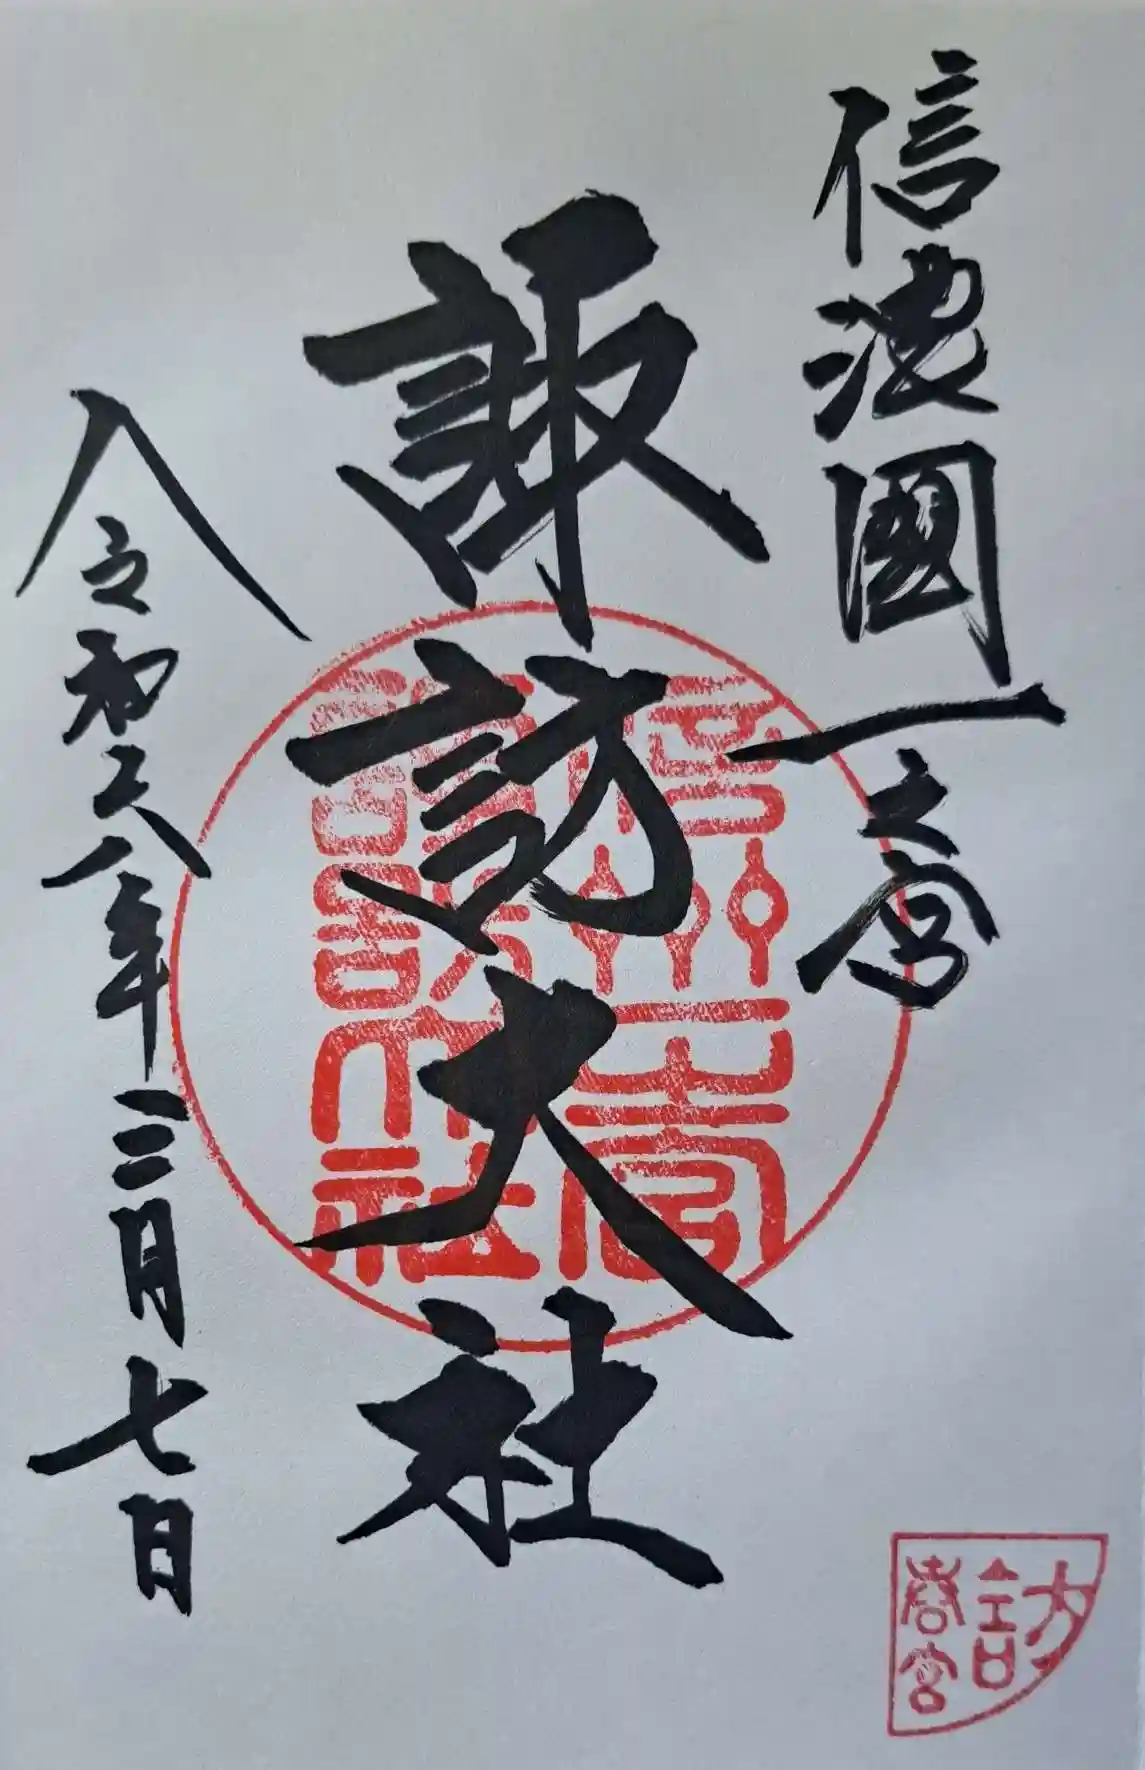 信濃國一之宮
諏訪大社
令和六年三月七日
信州一之宮
諏訪大社
訪
春宮